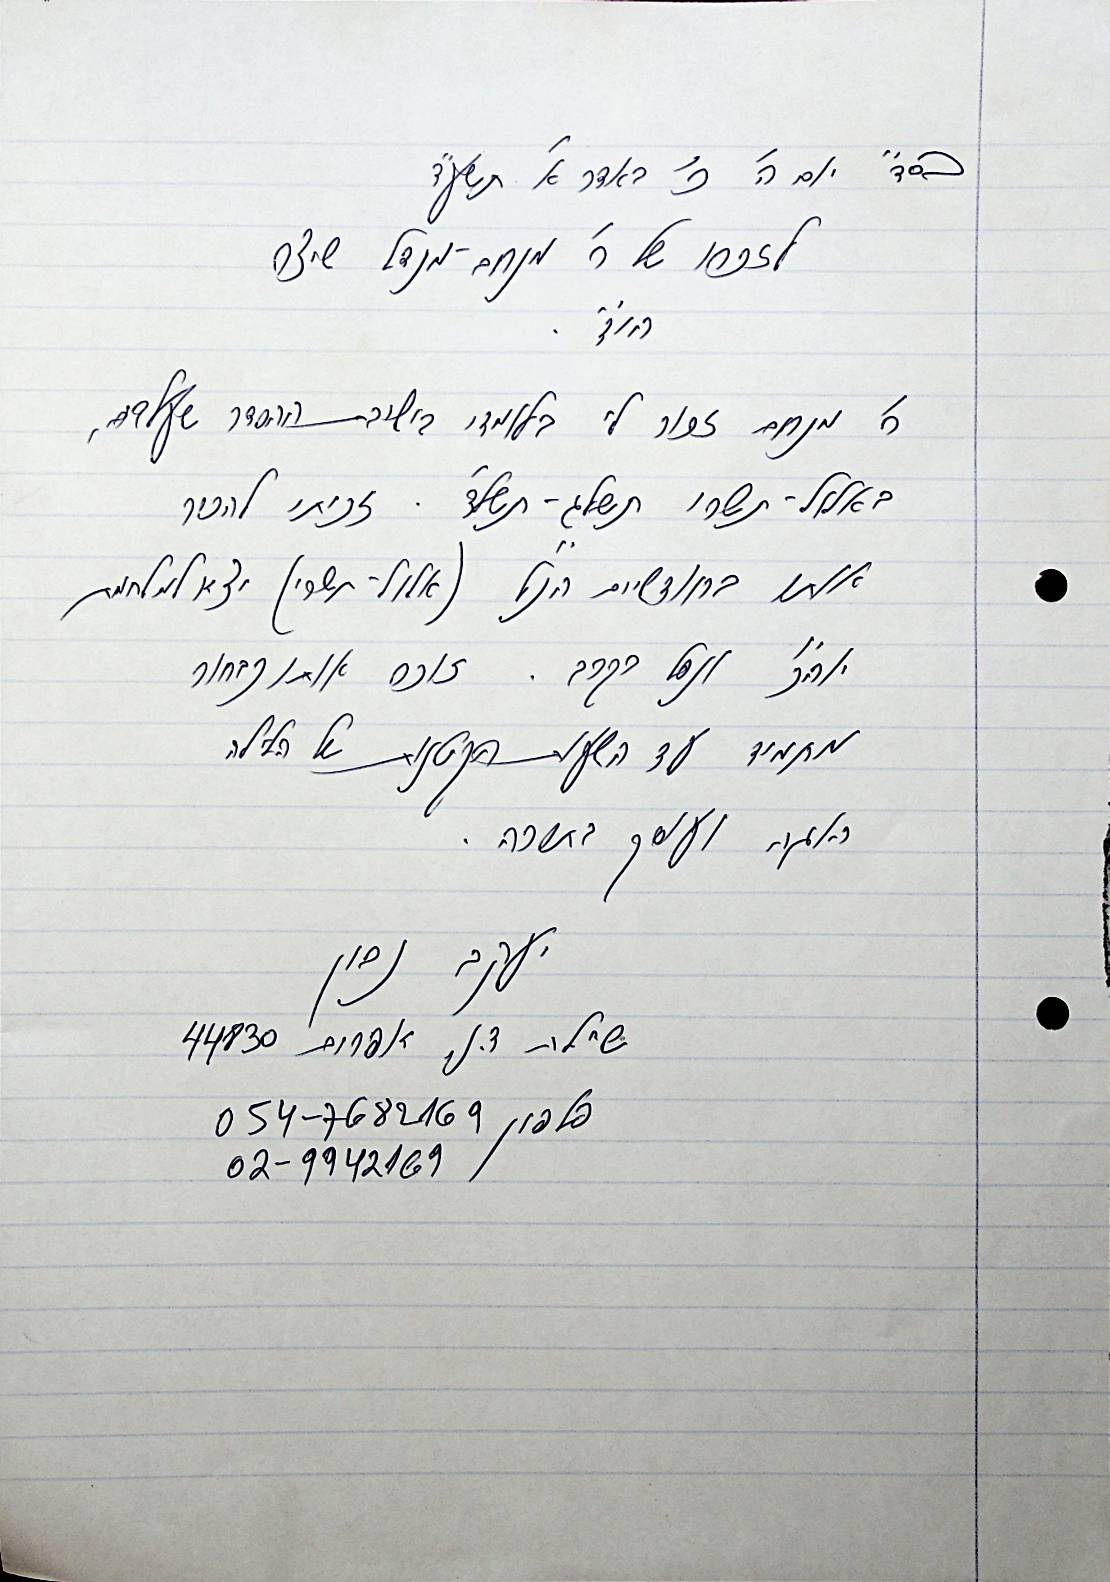 בסד" יום ה' כז' באדר א' תשע"ד
לזכרו של ר' מנחם-מנדל
הי"ד.
ר' מנחם זכור לי בלומדי בישיבת ההסדר שעלבים,
באלול-תשרי תשלג-תשלד. זכיתי להכיר
אותו בחודשיים הנ"ל (אלול-תשרי) יצא למלחמת
יוה"כ ונפל בקרב. זוכר אותו כבחור
מתמיד עד השעות הקטנות של הלילה
ועוסק בתורה.
יעקב נכון
שילה ד.נ. אפרים 44830
פלפון 054-7682169
02-9942169